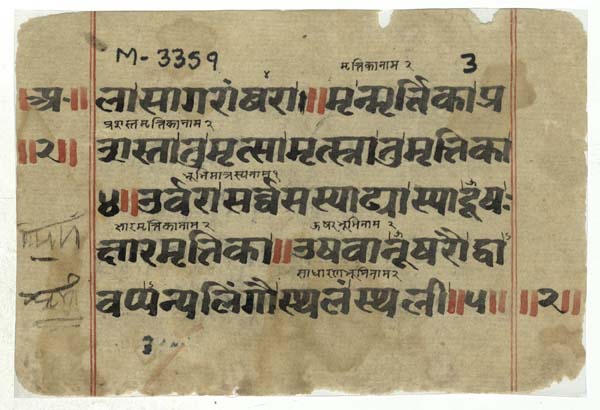 M-3359
मृत्तिकानाम २
3
॥अ॰॥ लासागरांबरा॥ मृन्मृर्त्तिकाप्र
प्रशस्तमृत्तिकानाम २
॥२॥ शस्तातुमृत्सामृत्स्नातुमृत्तिका
४॥ उर्वरासर्वसस्याढ्यास्यादूषः
क्षारमृत्तिकानाम २ ऊषरभूमिनाम २
क्षारमृत्तिका॥ उषवानूषरौद्वा
साधारणभूमिनाम २
वप्यन्यलिंगौस्थलंस्थली॥५॥ ॥२॥
3